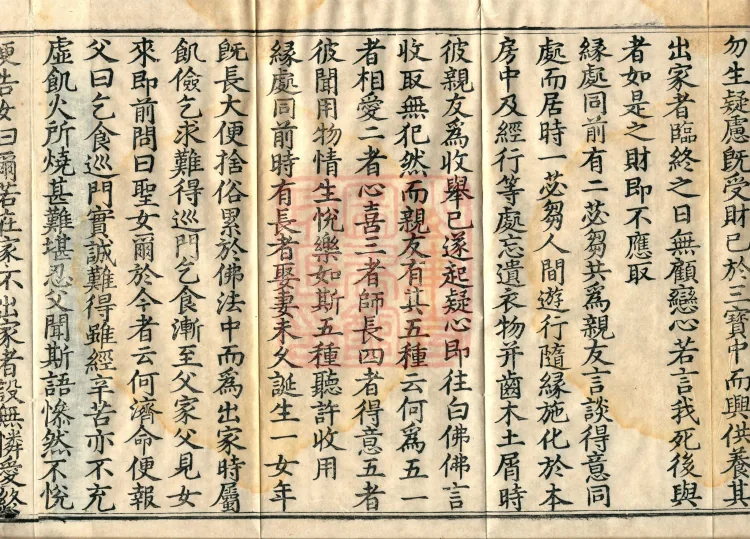 勿生疑慮既受財已於三寶中而興供養其
出家者臨終之日無顧戀心若言我死後與
者如是之財即不應取
緣處同前有二苾芻共為親友言談得意同
處而居時一苾芻人間遊行隨緣施化於本
房中及經行等處忘遺衣物并齒木土屑時
彼親友為收舉已遂起疑心即往白佛佛言
收取無犯然而親友有其五種云何為五一
者相愛二者心喜三者師長四者得意五者
彼聞用物情生悅樂如斯五種聽許收用
緣處同前時有長者娶妻未久誕生一女年
既長大便捨俗累於佛法中而為出家時屬
飢儉乞求難得巡門乞食漸至父家父見女
來即前問曰聖女爾於今者云何濟命便報
父曰乞食巡門實誠難得雖經辛苦亦不充
虛飢火所燒甚難堪忍父聞斯語慘然不悅
便告女曰爾若在家不出家者設無憐愛終